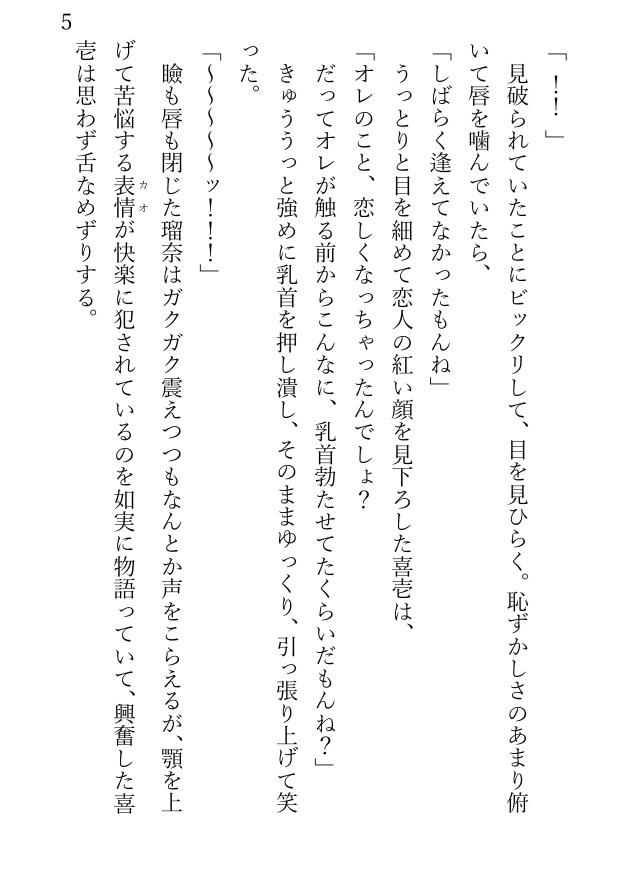 「　!!　」
　見破られていたことにビックリして、目を見ひらく。恥ずかしさのあまり俯
いて唇を噛んでいたら、
「しばらく逢えてなかったもんね」
　うっとりと目を細めて恋人の紅い顔を見下ろした喜壱は、
「オレのこと、恋しくなっちゃったんでしょ？
　だってオレが触る前からこんなに、乳首勃たせてたくらいだもんね？」
　きゅううっと強めに乳首を押し潰し、そのままゆっくり、引っ張り上げて笑
った。
「～～～～～ッ！！！」
　瞼も唇も閉じた瑠奈はガクガク震えつつもなんとか声をこらえるが、顎を上
げて苦悩する表情カオが快楽に犯されているのを如実に物語っていて、興奮した喜
壱は思わず舌なめずりする。
5